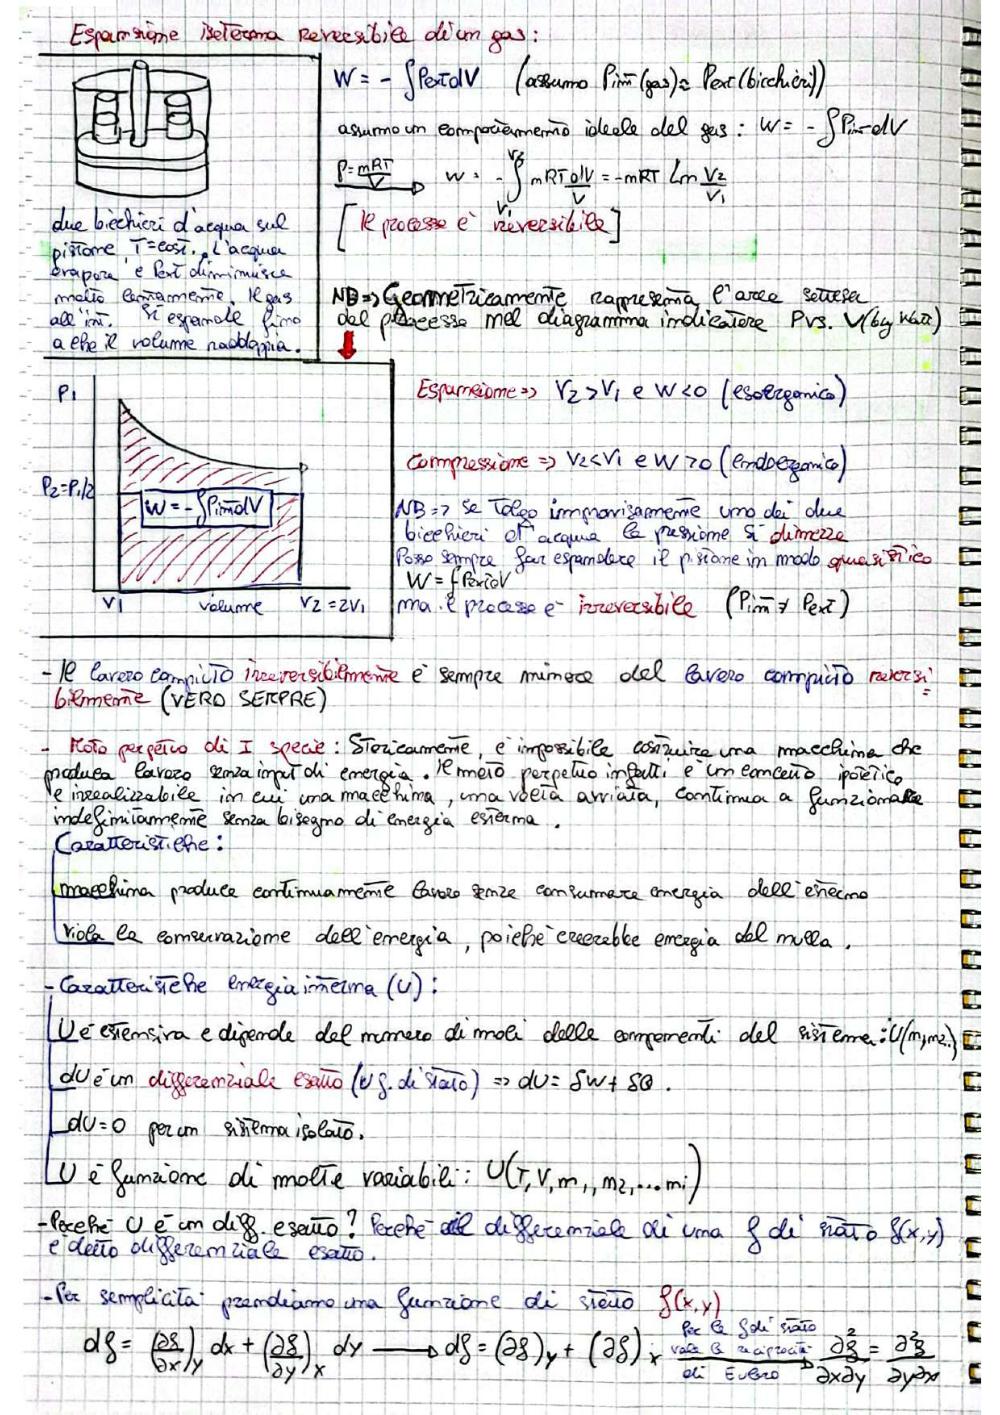 Espansione isoterma reversibile di un gas:
W = - ∫Pext dV (assumo Pint (gas) = Pext (bicchieri))
assumo un comportamento ideale del gas: W = - ∫Pint dV
P = nRT/V → W = - ∫ nRT dV/V = -nRT ln V2/V1
V2
V1
[Il processo è reversibile]
due bicchieri d'acqua sul
pistone, T=cost., L'acqua
evapora e Pext diminuisce
molto lentamente. Il gas
all'int. si espande fino
a che il volume raddoppia.
NB => Geometricamente rappresenta l'area sottesa
dal processo nel diagramma indicatore P vs. V (by Watt)
P1
P2=P1/2
W = - ∫Pint dV
V1 volume V2 = 2V1
Espansione => V2 > V1 e W < 0 (esoergonico)
Compressione => V2 < V1 e W > 0 (endoergonico)
NB => se tolgo improvvisamente uno dei due
bicchieri d'acqua la pressione si dimezza
Posso sempre far espandere il pistone in modo quasistatico
W = ∫Pext dV
ma il processo è irreversibile (Pint ≠ Pext)
- Il lavoro compiuto irreversibilmente è sempre minore del lavoro compiuto reversi
bilmente (VERO SEMPRE)
- Moto perpetuo di I specie: Storicamente, è impossibile costruire una macchina che
produca lavoro senza input di energia. Il moto perpetuo infatti è un concetto ipotetico
e irrealizzabile in cui una macchina, una volta avviata, continua a funzionare
indefinitamente senza bisogno di energia esterna.
Caratteristiche:
macchina produce continuamente lavoro senza consumare energia dall'esterno
viola la conservazione dell'energia, poiché creerebbe energia dal nulla.
- Caratteristiche energia interna (U):
U è estensiva e dipende dal numero di moli delle componenti del sistema: U(n1,n2..)
dU è un differenziale esatto (U f. di stato) => dU = δW + δQ.
dU=0 per un sistema isolato.
U è funzione di molte variabili: U(T, V, n1, n2, ... ni)
- Perché U è un diff. esatto? Perché il differenziale di una f di stato f(x,y)
è detto differenziale esatto.
- Per semplicità prendiamo una funzione di stato f(x,y)
df = (∂f/∂x)y dx + (∂f/∂y)x dy → df = (∂f)y + (∂f)x Per la f di stato vale la reciprocità di Eulero → ∂²f/∂x∂y = ∂²f/∂y∂x